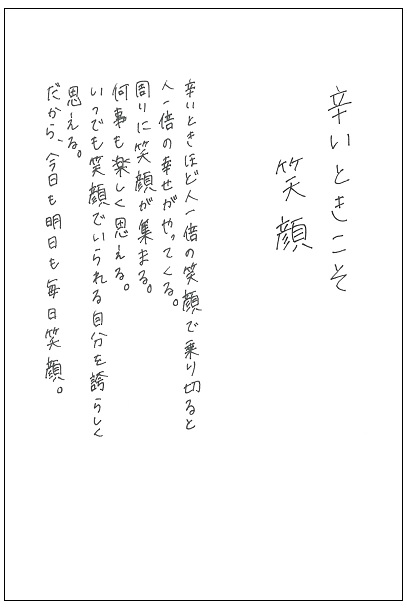 辛いときこそ
笑顔
辛いときほど人一倍の笑顔で乗り切ると
人一倍の幸せがやってくる。
周りに笑顔が集まる。
何事も楽しく思える。
いつでも笑顔でいられる自分を誇らしく
思える。
だから、今日も明日も毎日笑顔。